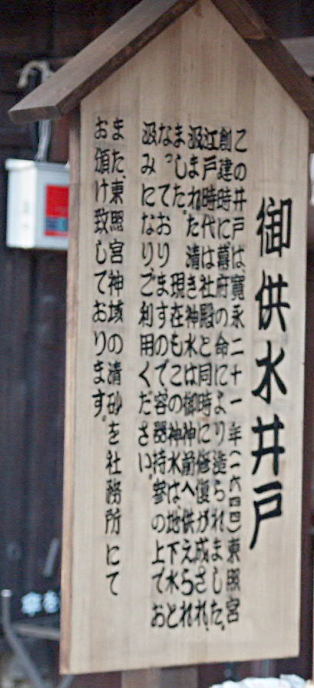 御供水井戸
この井戸は寛永二十一年(一六四四)東照宮
創建時に幕府の命により造られました。
江戸時代は社殿と同時に修復が成され、
汲まれた清き神水は御神前へ供えられ
ました。現在もこの神水は地下水と
なっておりますので容器持参の上でお
汲みになりご利用ください。
また、東照宮神域の清砂を社務所にて
お頒け致しております。